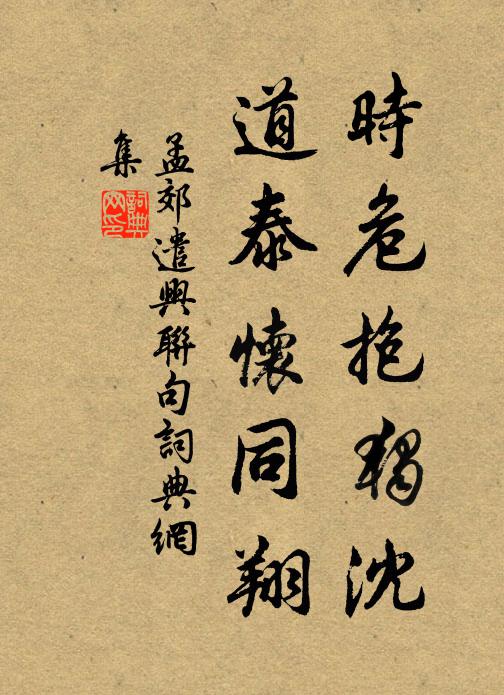 時危抱獨沈
道泰懷同翔
孟郊遣興聯句詞典網
集
詞典网印